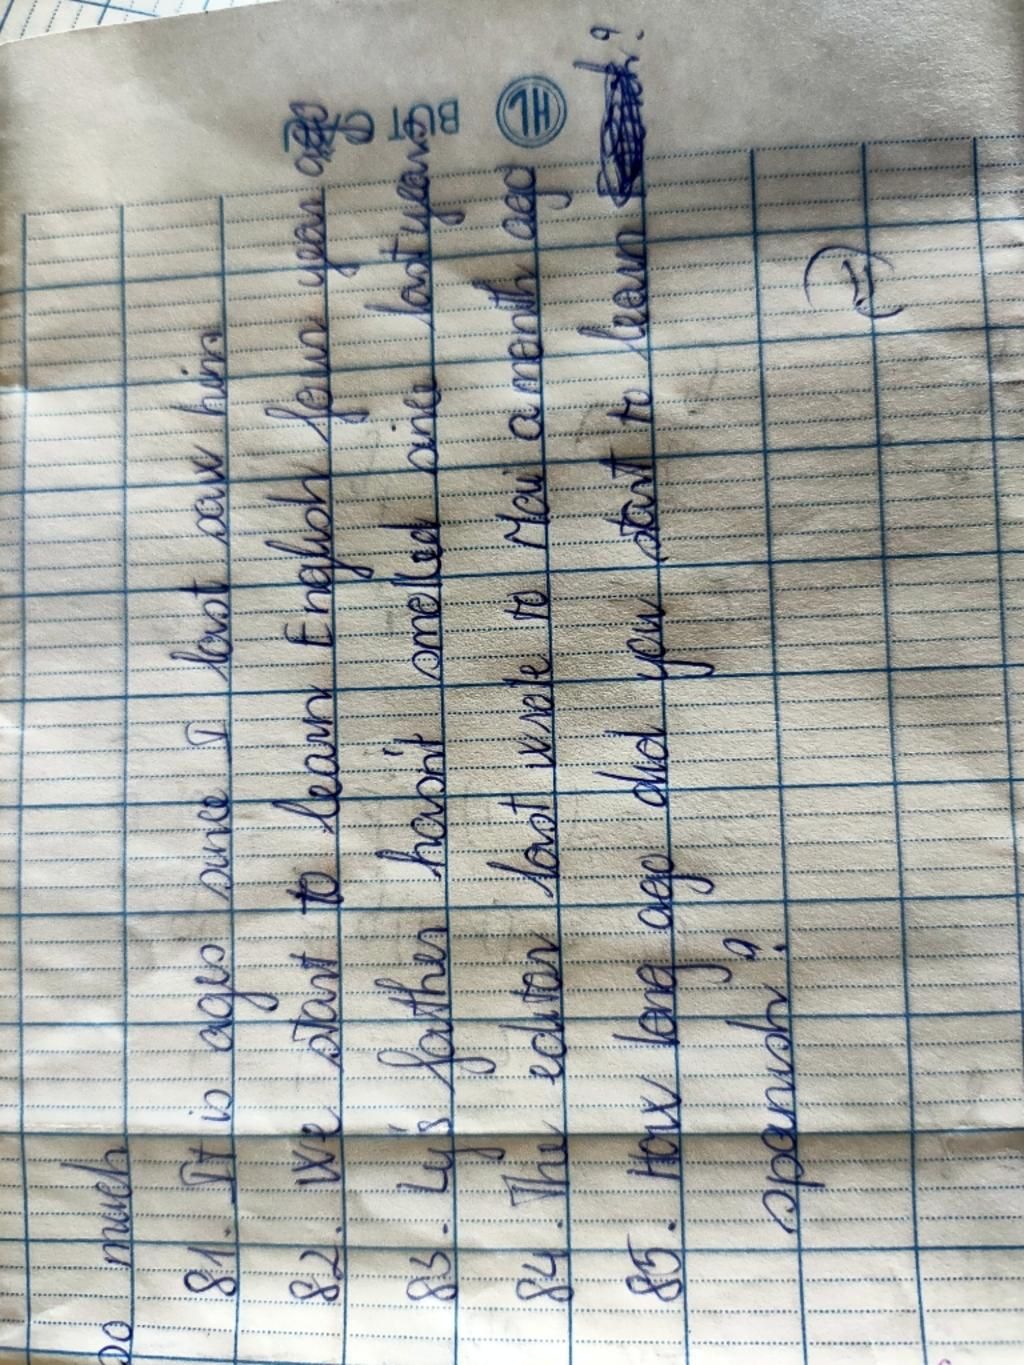 so much
81. It is ages since I last saw him
82. We start to learn English four year ago
83. Ly's father hasn't smoked sine last year
84. The editor last wrote to Mai a month ago
85. How long ago did you start to learn ?
Spanish?
HL